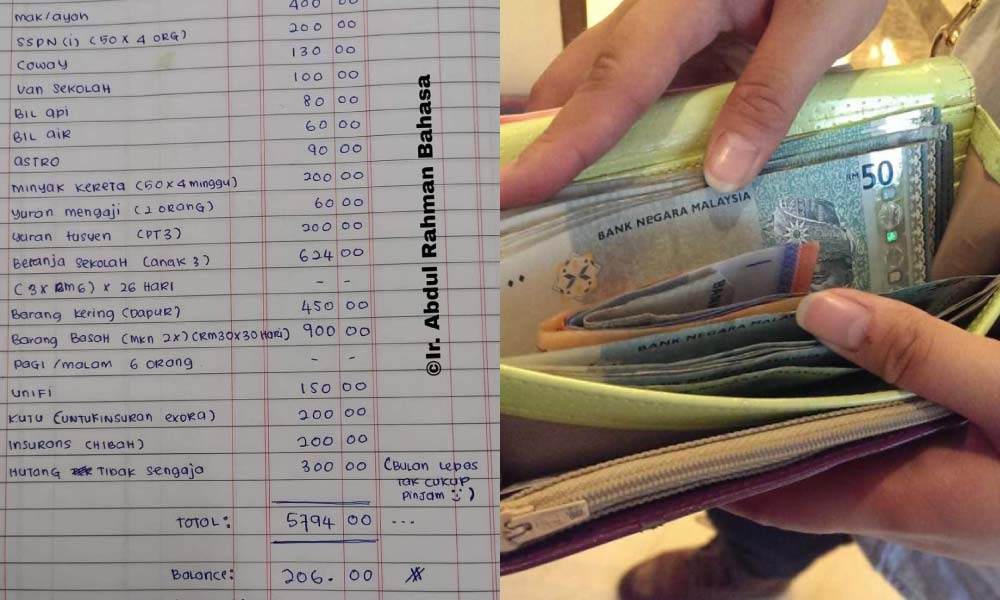 mak/ayah 400 00
SSPN(i) (50 x 4 ORG) 200 00
Coway 130 00
Van SEKOLAH 100 00
BIL api 80 00
BIL aiR 60 00
ASTRO 90 00
Minyak Kereta (50 x 4 minggu) 200 00
yuran mengaji (2 ORANG) 60 00
yuran tusyen (PT3) 200 00
Beranja SEKOLAH (anak 3) 624 00
(3 x RM6) x 26 HARI - -
Barang Kering (Dapur) 450 00
Barang BasaH (mkn 2x) (RM30x30 Hari) 900 00
PAGI /malam 6 orang - -
UNIFI 150 00
KUTU (UNTUKINSURAN EXORA) 200 00
Insurans (HIBAH) 200 00
Hutang Tidak Sengaja 300 00 (Bulan lepas
Tak CUKUP
Pinjam )
TOTAL: 5794 00 ...
Balance: 206. 00
©Ir. Abdul Rahman Bahasa
RM50
BANK NEGARA MALAYSIA
BANK NEGARA MALA